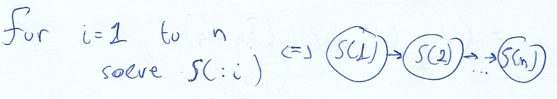 for i=1 to n
solve S(:i) <=> S(1) → S(2) → ... → S(n)